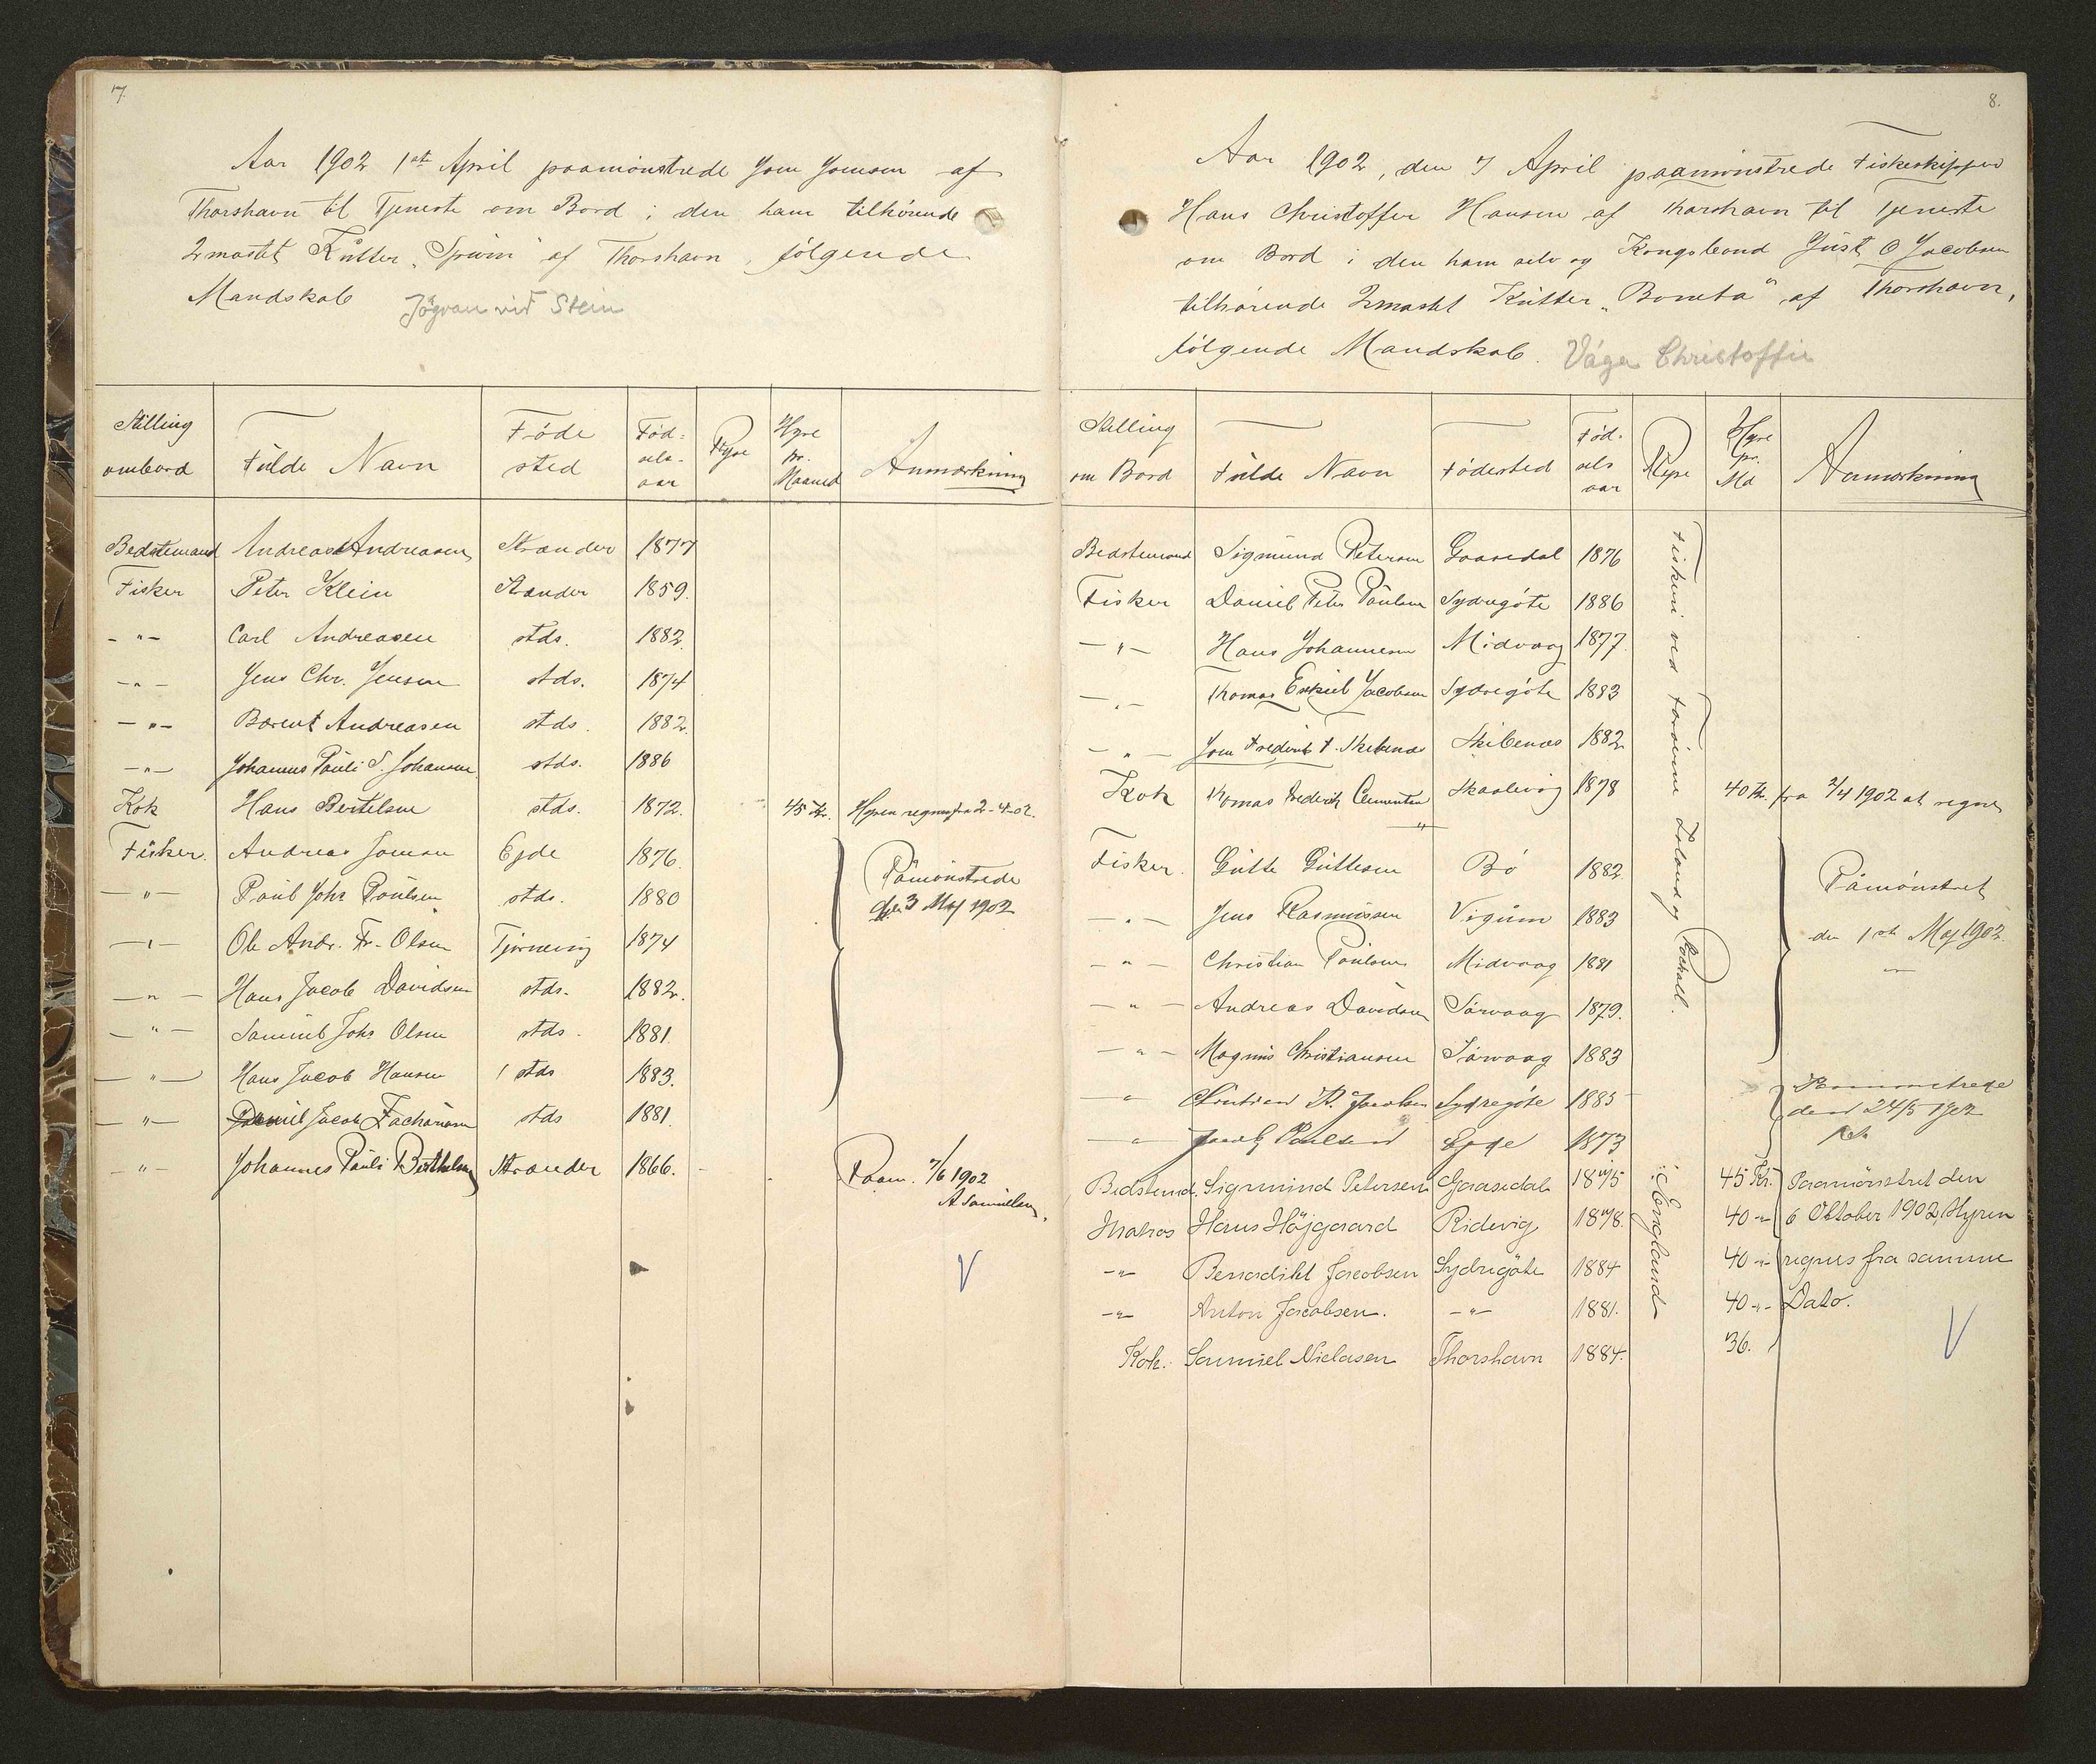 7.
Aar 1902 1ste April paamönstrede Joen Joensen af
Thorshavn til Tjeneste om Bord i den ham tilhörende
2mastet Kutter "Spurn" af Thorshavn, følgende
Mandskab Jógvan við Stein
Stilling ombord Fulde Navn Føde sted Föd= sels- aar Rejse Hyre pr. Maaned Anmærkning
Bedstemand Andreas Andreasen Strænder 1877
Fisker Peter Klein Strænder 1859.
- " - Carl Andreasen stds. 1882.
- " - Jens Chr. Jensen stds. 1874
- " - Barent Andreasen stds. 1882.
- " - Johannes Pauli S. Johansen stds. 1886
Kok Hans Bertelsen stds. 1872. 45 Kr. Hyren regnes fra 2-4-02.
Fisker. Andreas Joensen Ejde 1876.
- " - Poul Johs Poulsen stds. 1880 Påmönstrede den 3 Maj 1902
- " - Ole Andr. Fr. Olsen Tjørnevig 1874
- " - Hans Jacob Davidsen stds. 1882.
- " - Samuel Johs Olsen stds. 1881.
- " - Hans Jacob Hansen stds 1883.
- " - Daniel Jacob Zachariasen stds 1881.
- " - Johannes Pauli Berthelsen Strænder 1866. Paam. 7/6 1902
A Samuelsen.
8.
Aar 1902, den 7 April paamönstrede Fiskeskipper
Hans Christoffer Hansen af Thorshavn til Tjeneste
om Bord i den ham selv og Kongsbond Just O Jacobsen
tilhörende 2mastet Kutter "Boneta" af Thorshavn,
følgende Mandskab. Vága Christoffir
Stilling om Bord Fulde Navn Födested Föd- sels aar Rejse Hyre pr. Md Anmærkning
Bedstemand Sigmund Petersen Gaasedal 1876
Fisker Daniel Peter Poulsen Sydregöte 1886
- " - Hans Johannesen Midvaag 1877.
- " - Thomas Esekiel Jacobsen Sydregöte 1883
- " - Joen Frederik F. Skibenæs Skibenæs 1882
Kok Thomas Frederik Clementsen Skaalevig 1878 40 Kr. fra 2/4 1902 at regne
Fisker. Gutte Guttesen Bö 1882.
- " - Jens Rasmussen Viğum 1883 Påmönstret
- " - Christian Poulsen Midvaag 1881 den 1ste Maj 1902.
- " - Andreas Davidsen Sörvaag 1879.
- " - Magnus Christiansen Sörvaag 1883
- " - Christian P. Jacobsen Sydregöte 1885 Paamönstrede
- " - Jacob Poulsen Ejde 1873 dend 24/5 1902
Bedstemd. Sigmund Petersen Gaasedal 1875 45 Kr. Paamönstret den
Matros Hans Höjgaard Ridevig 1878. 40 - " 6 Oktober 1902, Hyren
- " - Benedikt Jacobsen Sydregöte 1884 40 - " - regnes fra samme
- " - Anton Jacobsen. - " - 1881. 40 - " - Dato.
Kok. Samuel Nielasen Thorshavn 1884. 36.
Fiskeri ved Færöerne Island og Rockall.
i England